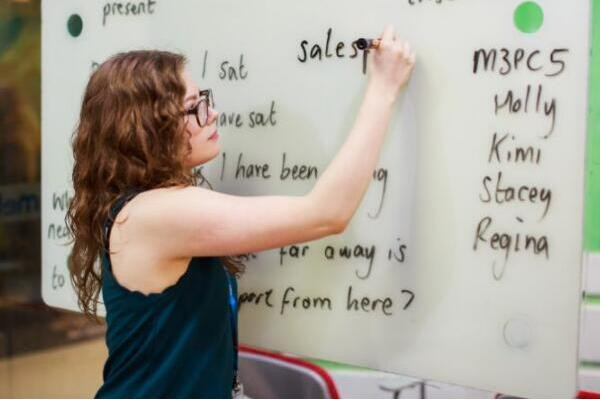 present
sales
I sat
have sat
I have been
far away is
from here?
to
M3PC5
Molly
Kimi
Stacey
Regina